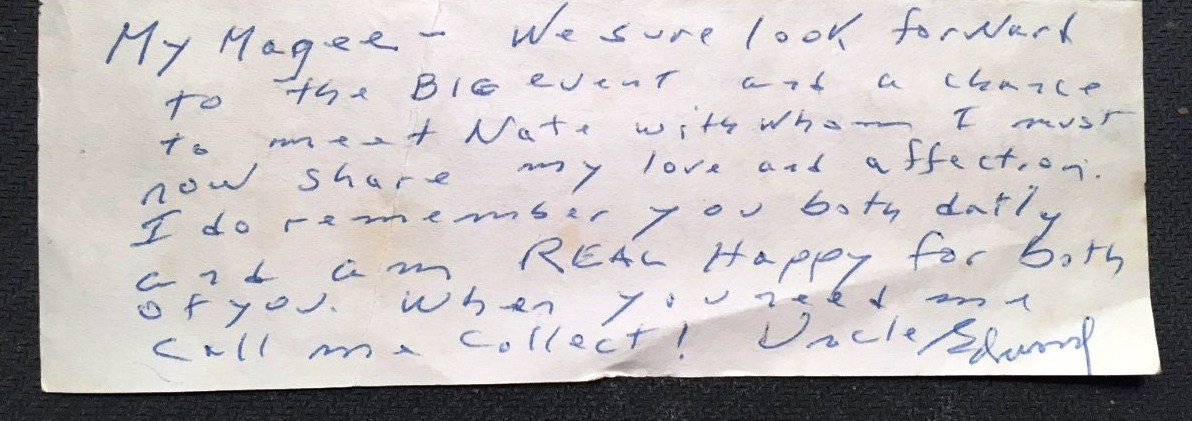 My Magee - We sure look forward
to the BIG event and a chance
to meet Nate with whom I must
now share my love and affection.
I do remember you both daily
and am REAL Happy for both
of you. When you need me
Call me Collect! Uncle Edward